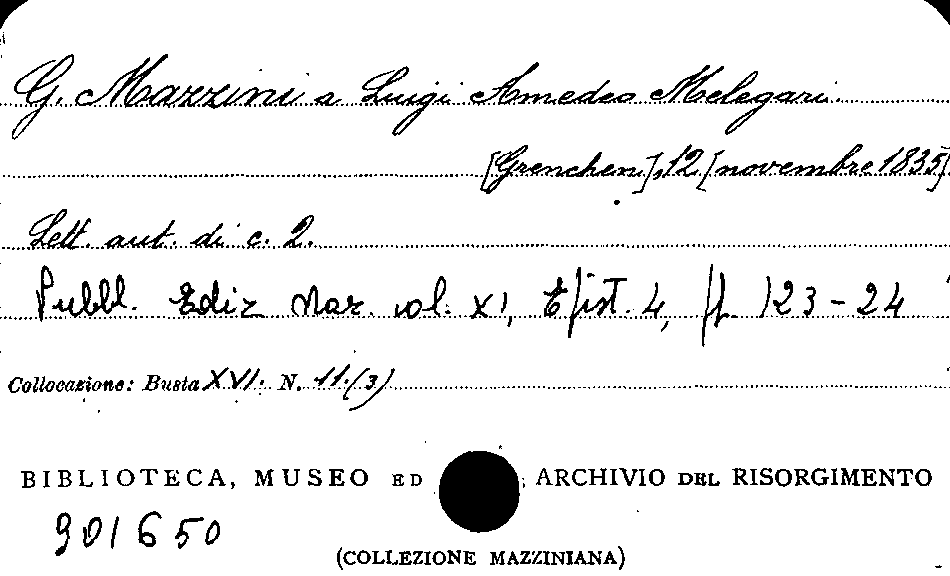 G. Mazzini a Luigi Amedeo Melegari.
[Grenchen], 12 [novembre 1835]
Lett. aut. di c. 2.
Pubbl. Ediz Naz. vol. XI, Epist. 4, pp. 123-24
Collocazione: Busta XVI. N. 11.(3)
BIBLIOTECA, MUSEO ED ARCHIVIO DEL RISORGIMENTO
901650
(COLLEZIONE MAZZINIANA)